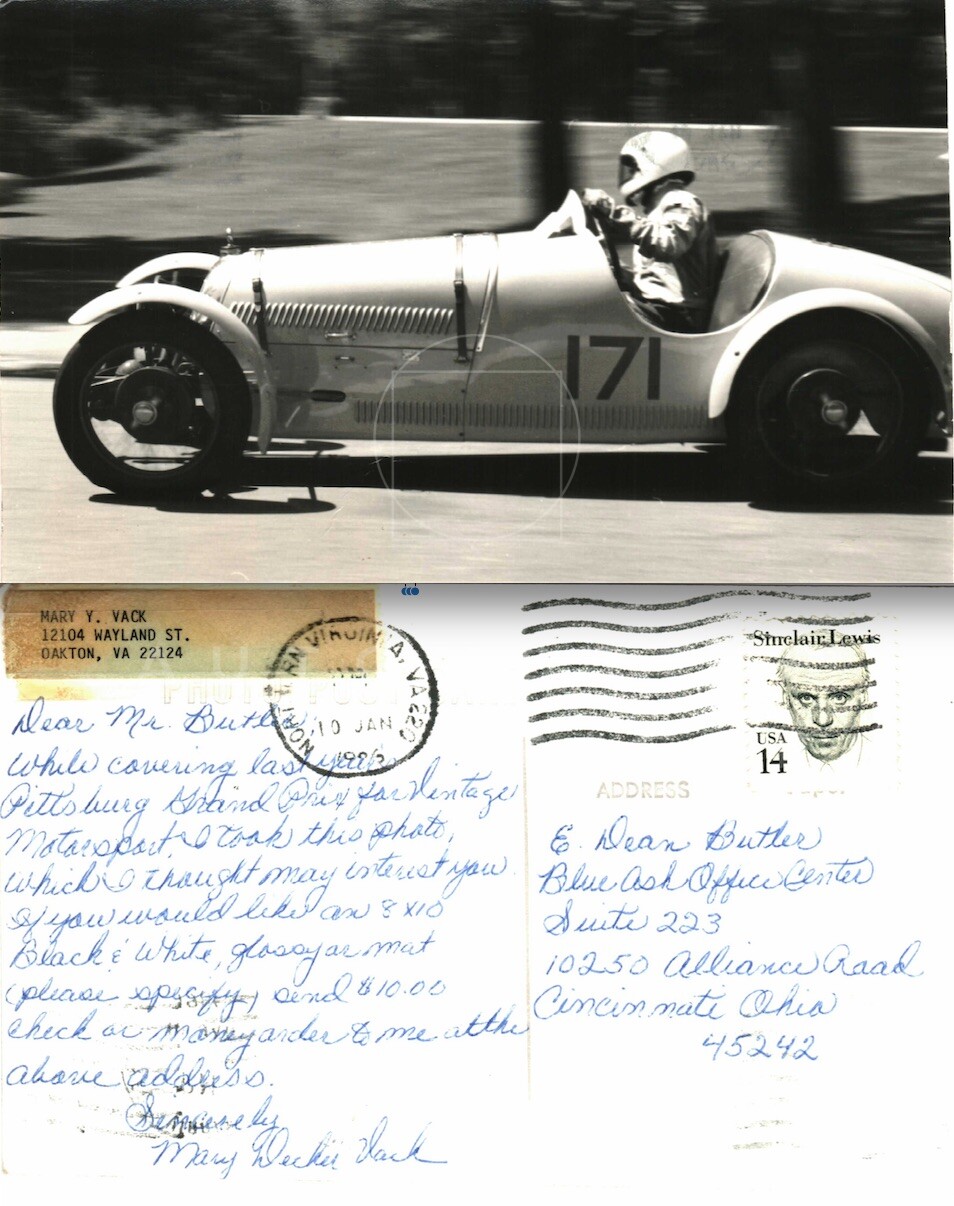 171
MARY Y. VACK
12104 WAYLAND ST.
OAKTON, VA 22124
NORTHERN VIRGINIA, VA 220
10 JAN
1986
Sinclair Lewis
USA
14
ADDRESS
Dear Mr. Butler,
While covering last years
Pittsburg Grand Prix for Vintage
Motorsport, I took this photo,
which I thought may interest you.
If you would like an 8x10
Black & White, glossy or mat
(please specify) send $10.00
check or money order to me at the
above address.
Sincerely
Mary Decker Vack
E. Dean Butler
Blue Ash Office Center
Suite 223
10250 Alliance Road
Cincinnate Ohio
45242